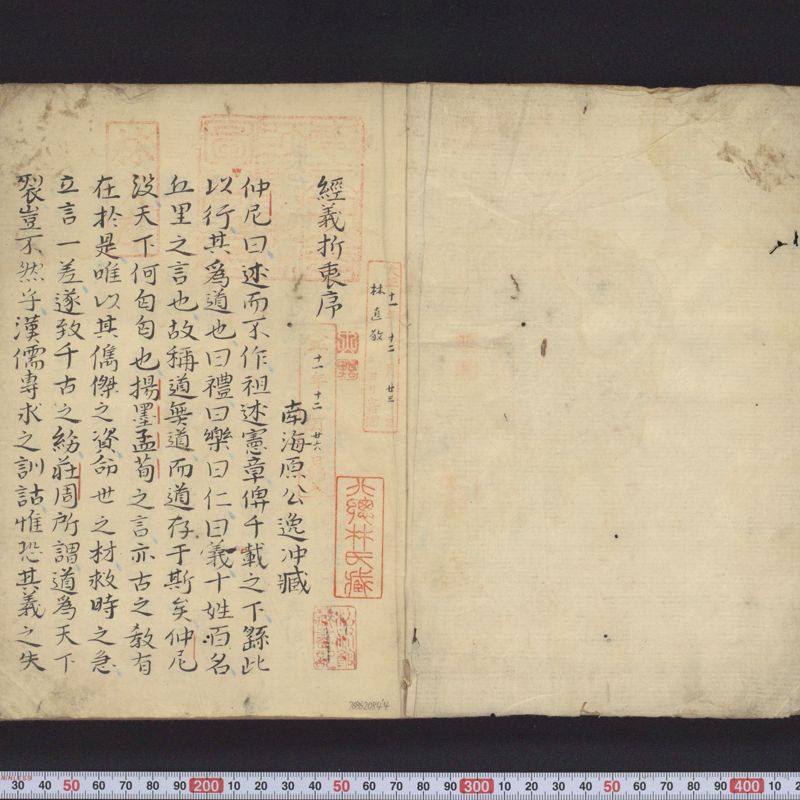 經義折衷序
南海原公逸冲臧
仲尼曰述而不作祖述憲章俾千載之下繇此
以行其爲道也曰禮曰樂曰仁曰義十姓百名
丘里之言也故稱道無道而道存于斯矣仲尼
没天下何匈匈也揚墨孟荀之言亦古之教有
在於是唯以其儁傑之資命世之材救時之急
立言一差遂致千古之紛莊周所謂道爲天下
裂豈不然乎漢儒專求之訓詁惟恐其義之失
林直敬
十一 十二 廿三
十一 十二 廿六
林氏藏
30 40 50 60 70 80 90 200 10 20 30 40 50 60 70 80 90 300 10 20 30 40 50 60 70 80 90 400 10